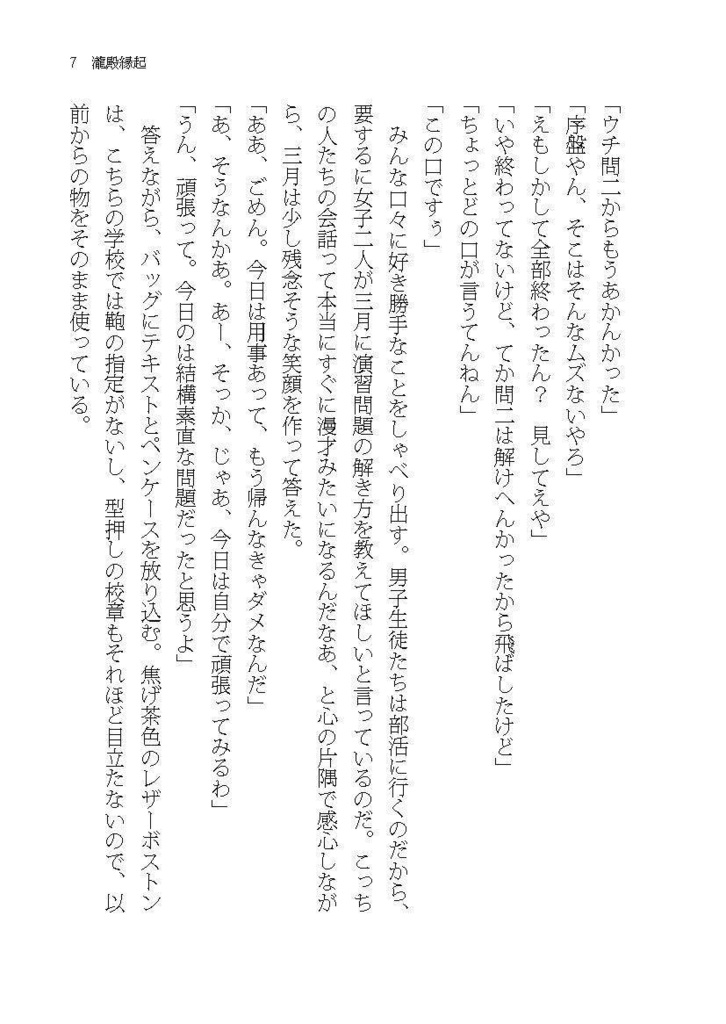 7　瀧殿縁起
「ウチ問二からもうあかんかった」
「序盤やん、そこはそんなムズないやろ」
「えもしかして全部終わったん？　見してえや」
「いや終わってないけど、てか問二は解けへんかったから飛ばしたけど」
「ちょっとどの口が言うてんねん」
「この口ですぅ」
　みんな口々に好き勝手なことをしゃべり出す。男子生徒たちは部活に行くのだから、
要するに女子二人が三月に演習問題の解き方を教えてほしいと言っているのだ。こっち
の人たちの会話って本当にすぐに漫才みたいになるんだなあ、と心の片隅で感心しなが
ら、三月は少し残念そうな笑顔を作って答えた。
「ああ、ごめん。今日は用事あって、もう帰んなきゃダメなんだ」
「あ、そうなんかあ。あー、そっか、じゃあ、今日は自分で頑張ってみるわ」
「うん、頑張って。今日のは結構素直な問題だったと思うよ」
　答えながら、バッグにテキストとペンケースを放り込む。焦げ茶色のレザーボストン
は、こちらの学校では鞄の指定がないし、型押しの校章もそれほど目立たないので、以
前からの物をそのまま使っている。